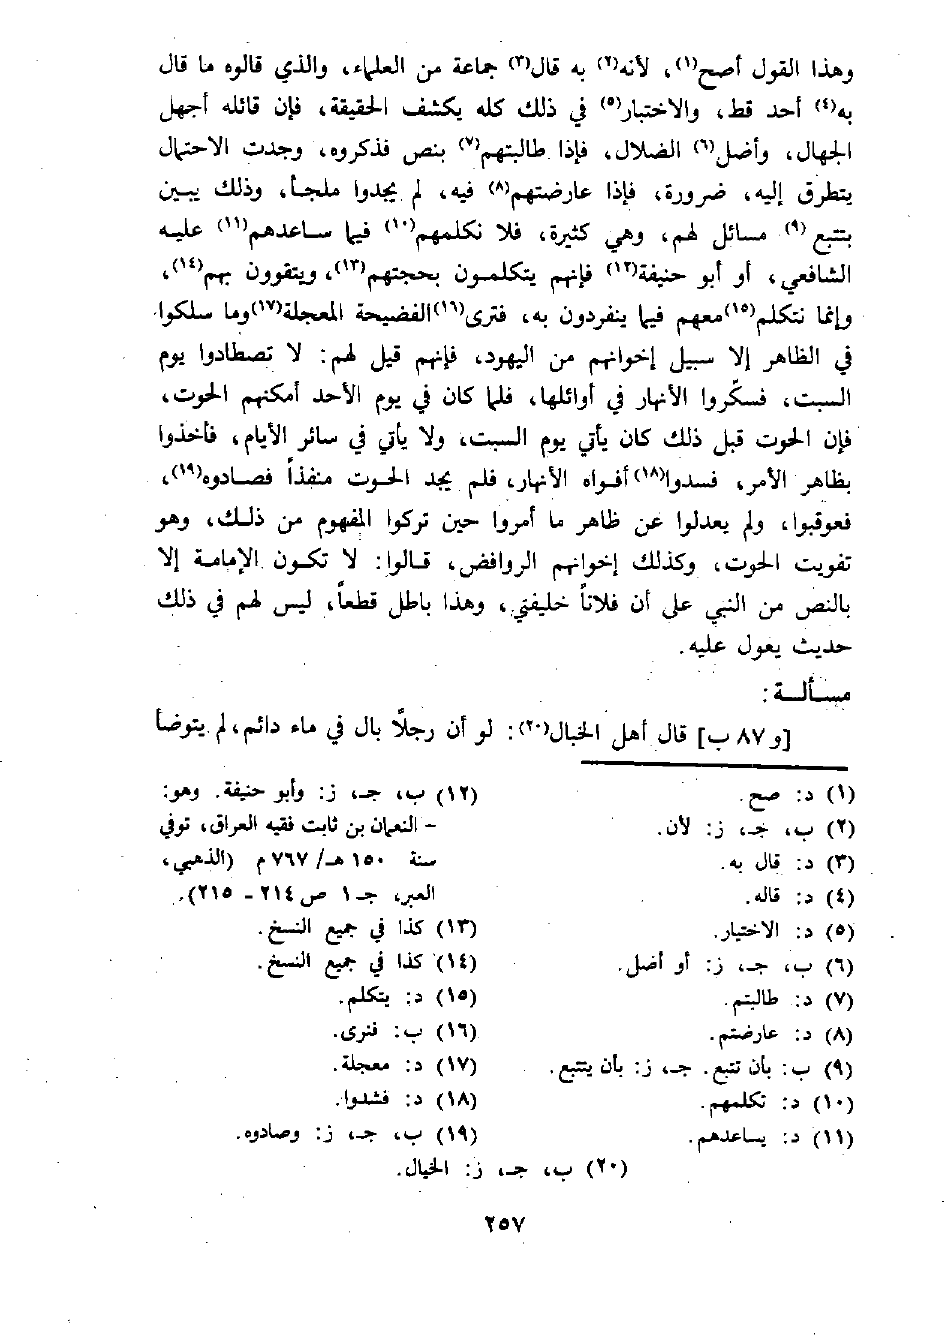 وهذا القول أصح(١)، لأنه(٢) به قال(٣) جماعة من العلماء، والذي قالوه ما قال
به(٤) أحد قط، والاختبار(٥) في ذلك كله يكشف الحقيقة، فإن قائله أجهل
الجهال، وأضل(٦) الضلال، فإذا طالبتهم(٧) بنص فذكروه، وجدت الاحتمال
يتطرق إليه، ضرورة، فإذا عارضتهم(٨) فيه، لم يجدوا ملجأ، وذلك يبين
بتتبع(٩) مسائل لهم، وهي كثيرة، فلا نكلمهم(١٠) فيما ساعدهم(١١) عليه
الشافعي، أو أبو حنيفة(١٢) فإنهم يتكلمون بحجتهم(١٣)، ويتقوون بهم(١٤)،
وإنما نتكلم(١٥) معهم فيما ينفردون به، فترى(١٦) الفضيحة المعجلة(١٧) وما سلكوا
في الظاهر إلا سبيل إخوانهم من اليهود، فإنهم قيل لهم: لا تصطادوا يوم
السبت، فسكّروا الأنهار في أوائلها، فلما كان في يوم الأحد أمكنهم الحوت،
فإن الحوت قبل ذلك كان يأتي يوم السبت، ولا يأتي في سائر الأيام، فأخذوا
بظاهر الأمر، فسدوا(١٨) أفواه الأنهار، فلم يجد الحوت منفذاً فصادوه(١٩)،
فعوقبوا، ولم يعدلوا عن ظاهر ما أمروا حين تركوا المفهوم من ذلك، وهو
تفويت الحوت، وكذلك إخوانهم الروافض، قالوا: لا تكون الإمامة إلا
بالنص من النبي على أن فلاناً خليفتي، وهذا باطل قطعاً، ليس لهم في ذلك
حديث يعول عليه.
مسألة:
[و ٨٧ ب] قال أهل الخبال(٢٠): لو أن رجلًا بال في ماء دائم، لم يتوضأ
(١) د: صح.
(٢) ب، جـ، ز: لأن.
(٣) د: قال به.
(٤) د: قاله.
(٥) د: الاختيار.
(٦) ب، جـ، ز: أو أضل.
(٧) د: طالبتم.
(٨) د: عارضتم.
(٩) ب: بأن تتبع. جـ، ز: بأن يتتبع.
(١٠) د: تكلمهم.
(١١) د: يساعدهم.
(١٢) ب، جـ، ز: وأبو حنيفة. وهو:
- النعمان بن ثابت فقيه العراق، توفي
سنة ١٥٠ هـ/ ٧٦٧ م (الذهبي،
العبر، جـ ١ ص ٢١٤ - ٢١٥).
(١٣) كذا في جميع النسخ.
(١٤) كذا في جميع النسخ.
(١٥) د: يتكلم.
(١٦) ب: فنرى.
(١٧) د: معجلة.
(١٨) د: فشدوا.
(١٩) ب، جـ، ز: وصادوه.
(٢٠) ب، جـ، ز: الخيال.
٢٥٧